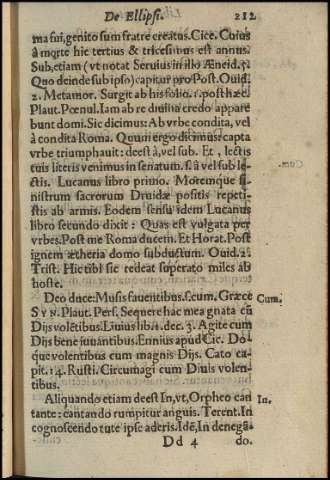 De Ellipsi. 212
ma fui, genito sum fratre creatus. Cice. Cuius
à morte hic tertius & tricesimus est annus.
Sub, etiam (vt notat Seruius in illo Æneid. 5.
Quo deinde sub ipso) capitur pro Post. Ouid.
2. Metamor. Surgit ab his solio. s. post hæc.
Plaut. Pœnul. Iam ab re diuina credo appare
bunt domi. Sic dicimus: Ab vrbe condita, vel
à condita Roma. Quum ergo dicimus: capta
vrbe triumphauit: deest à, vel sub. Et, lectis
tuis literis venimus in senatum. s. à vel sub le-
ctis. Lucanus libro primo. Moremque si-
nistrum sacrorum Druidæ positis repeti-
stis ab armis. Eodem sensu idem Lucanus
libro secundo dixit: Quas est vulgata per
vrbes. Post me Roma ducem. Et Horat. Post
ignem ætheria domo subductum. Ouid. 2.
Trist. Hic tibi sic redeat superato miles ab
hoste.
Deo duce: Musis fauentibus. s. cum. Græce Cum.
SYN. Plaut. Pers. Sequere hac mea gnata cũ
Dijs volẽtibus. Liuius lib. 1. dec. 3. Agite cum
Dijs bene iuuantibus. Ennius apud Cic. Dó-
que volentibus cum magnis Dijs. Cato ca-
pit. 14. Rusti. Circumagi cum Diuis volen-
tibus.
Aliquando etiam deest In, vt, Orpheo can In.
tante: cantando rumpitur anguis. Terent. In
cognoscendo tute ipse aderis. Idẽ, In denegã-
Dd 4 do.